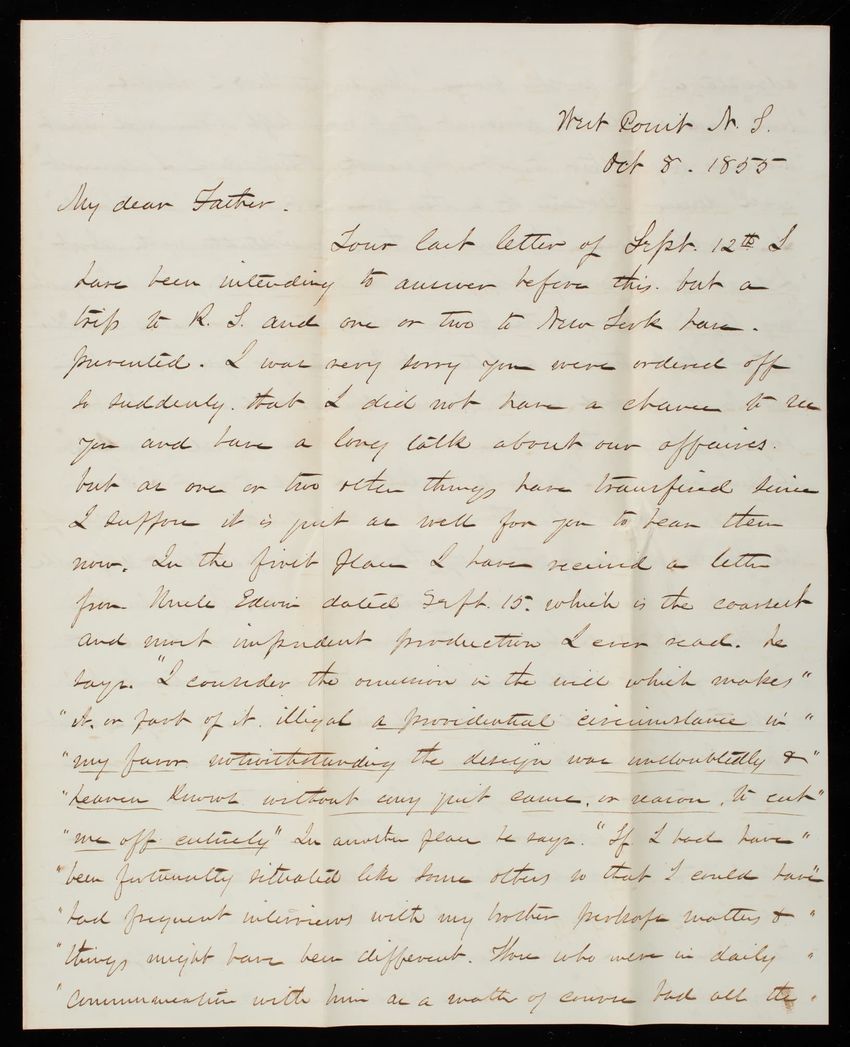 West Point N. Y.
Oct 8. 1855
My dear Father.
Your last letter of Sept. 12th I
have been intending to answer before this. but a
trip to R. I. and one or two to New York have.
prevented. I was very sorry you were ordered off
so suddenly. that I did not have a chance to see
you and have a long talk about our affairs.
but as one or two other things have transpired since
I suppose it is just as well for you to hear them
now. In the first place I have received a letter
from Uncle Edwin dated Sept. 15. which is the coarsest
and most impudent production I ever read. he
says. "I consider the omission in the will which makes"
"it. or part of it. illegal a providential circumstance in"
"my favor notwithstanding the design was undoubtedly &"
"heaven knows without any just cause. or reason. to cut"
"me off entirely" In another place he says. "If I had have"
"been fortunatly situated like some others so that I could have"
"had frequent interviews with my brother perhaps matters &"
"things might have been different. Those who were in daily"
"communication with him as a matter of course had all the"